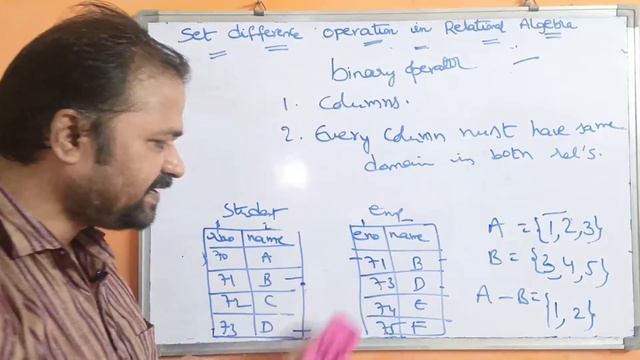 Set difference operation in Relational Algebra
binary operator
1. Columns.
2. Every Column must have same
domain in both rel's.
Student
1 2
rno name
70 A
71 B
72 C
73 D
emp
1
eno name
71 B
73 D
74 E
75 F
A = {1,2,3}
B = {3,4,5}
A - B = {1,2}